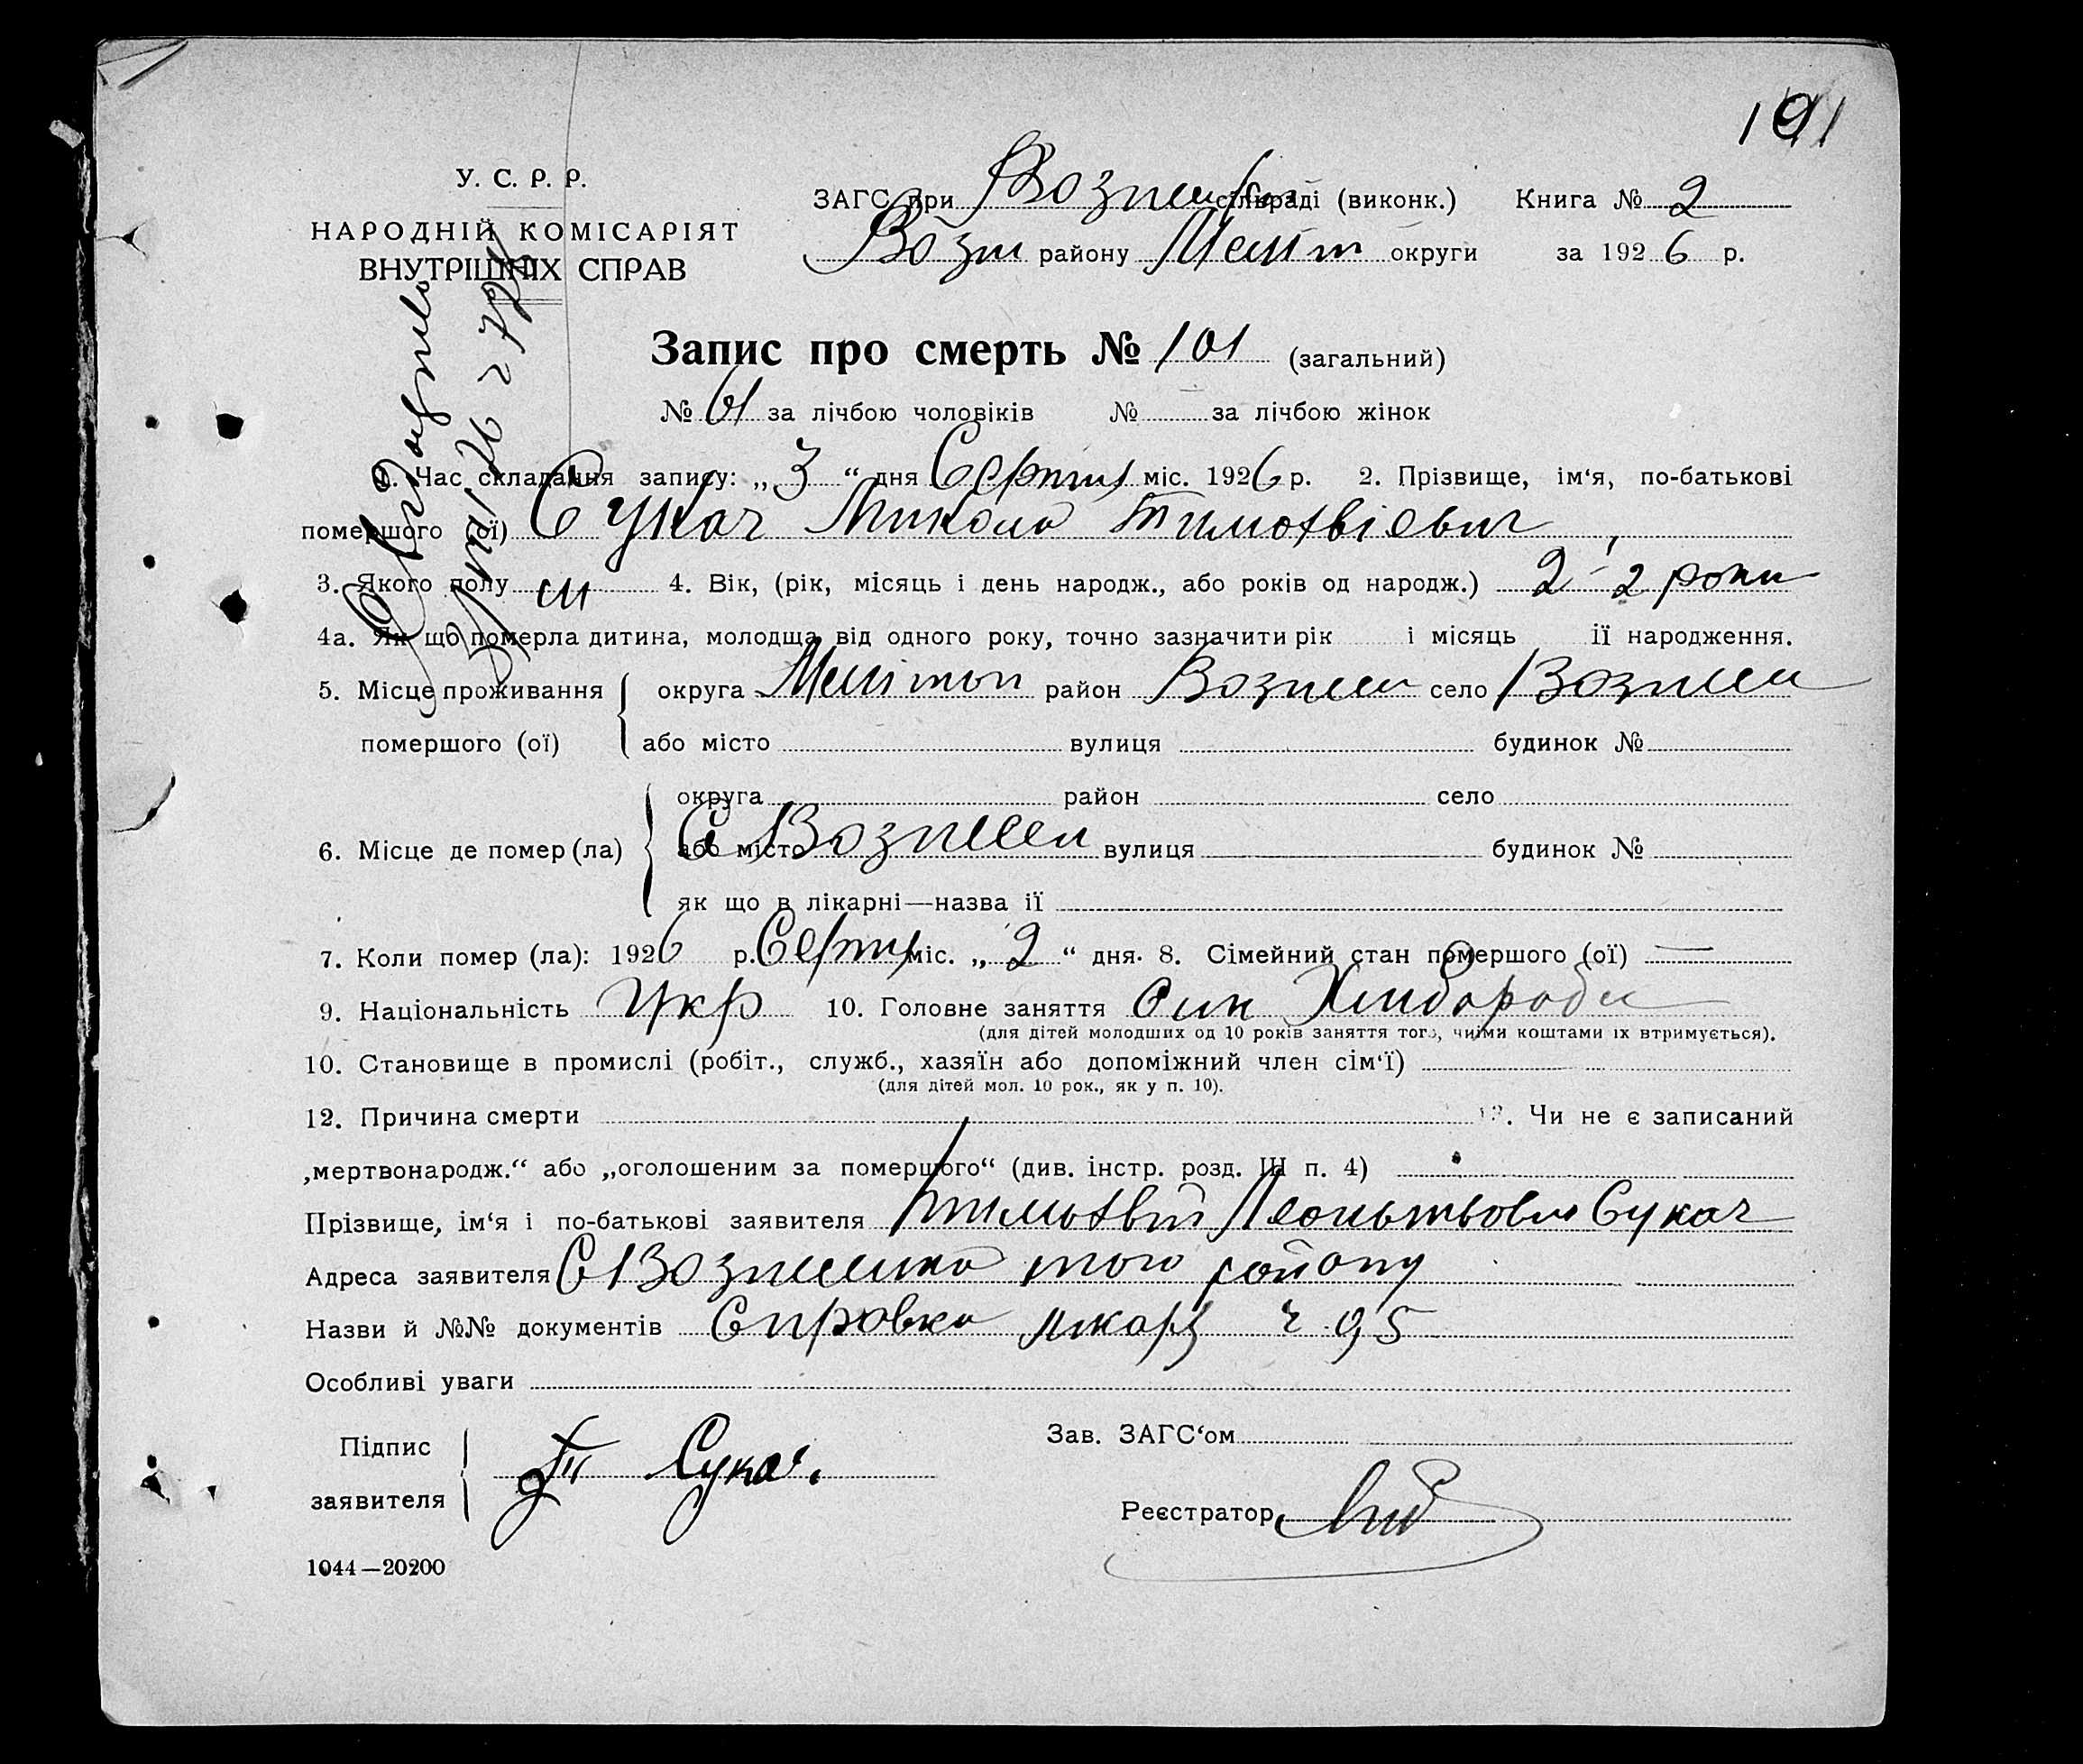 191
У. С. Р. Р.
НАРОДНІЙ КОМІСАРІЯТ
ВНУТРІШНІХ СПРАВ
ЗАГС при Вознесен сільраді (виконк.) Книга № 2
Возн району Меліт округи за 1926 р.
Запис про смерть № 101 (загальний)
№ 61 за лічбою чоловіків № за лічбою жінок
1. Час складання запису: „3“ дня Серпня міс. 1926 р. 2. Прізвище, ім‘я, по-батькові
помершого (ої) Сукач Микола Тимофвієвич
3. Якого полу ч 4. Вік, (рік, місяць і день народж., або років од народж.) 2 2 роки
4а. Як що померла дитина, молодща від одного року, точно зазначити рік і місяць її народження.
5. Місце проживання помершого (ої) округа Мелітоп район Вознесен село Вознесен
або місто вулиця будинок №
6. Місце де помер (ла) округа район село
або місто С Вознесен вулиця будинок №
як що в лікарні—назва її
7. Коли помер (ла): 1926 р. Серпня міс. „2“ дня. 8. Сімейний стан помершого (ої) —
9. Національність Укр 10. Головне заняття Син Хлибороба
(для дітей молодших од 10 років заняття того, чиїми коштами їх втримується).
10. Становище в промислі (робіт., служб., хазяїн або допоміжний член сім‘ї)
(для дітей мол. 10 рок., як у п. 10).
12. Причина смерти 13. Чи не є записаний
„мертвонародж.“ або „оголошеним за помершого“ (див. інстр. розд. III п. 4)
Прізвище, ім‘я і по-батькові заявителя Тимофвій Леонтьтьович Сукач
Адреса заявителя С Вознесенка того району
Назви й №№ документів Справка лікаря ч 95
Особливі уваги
Підпис заявителя Т Сукач.
Зав. ЗАГС‘ом
Реєстратор
1044—20200